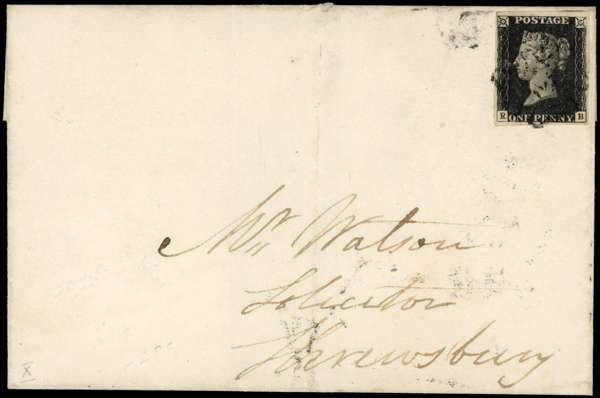 POSTAGE
R B
ONE PENNY
Mr Watson
Solicitor
Shrewsbury
X